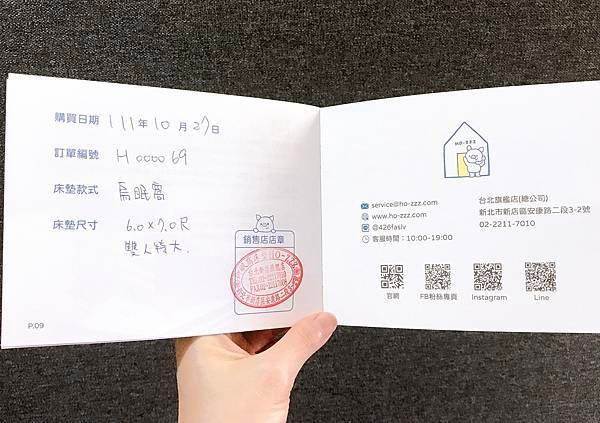 購買日期 111年10月27日
訂單編號 H000069
床墊款式 烏眠窩
床墊尺寸 6.0×7.0尺
雙人特大.
銷售店店章
P.09
HO-ZZZ
service@ho-zzz.com
www.ho-zzz.com
@426faslv
客服時間：10:00-19:00
台北旗艦店(總公司)
新北市新店區安康路二段3-2號
02-2211-7010
官網 FB粉絲專頁 Instagram Line